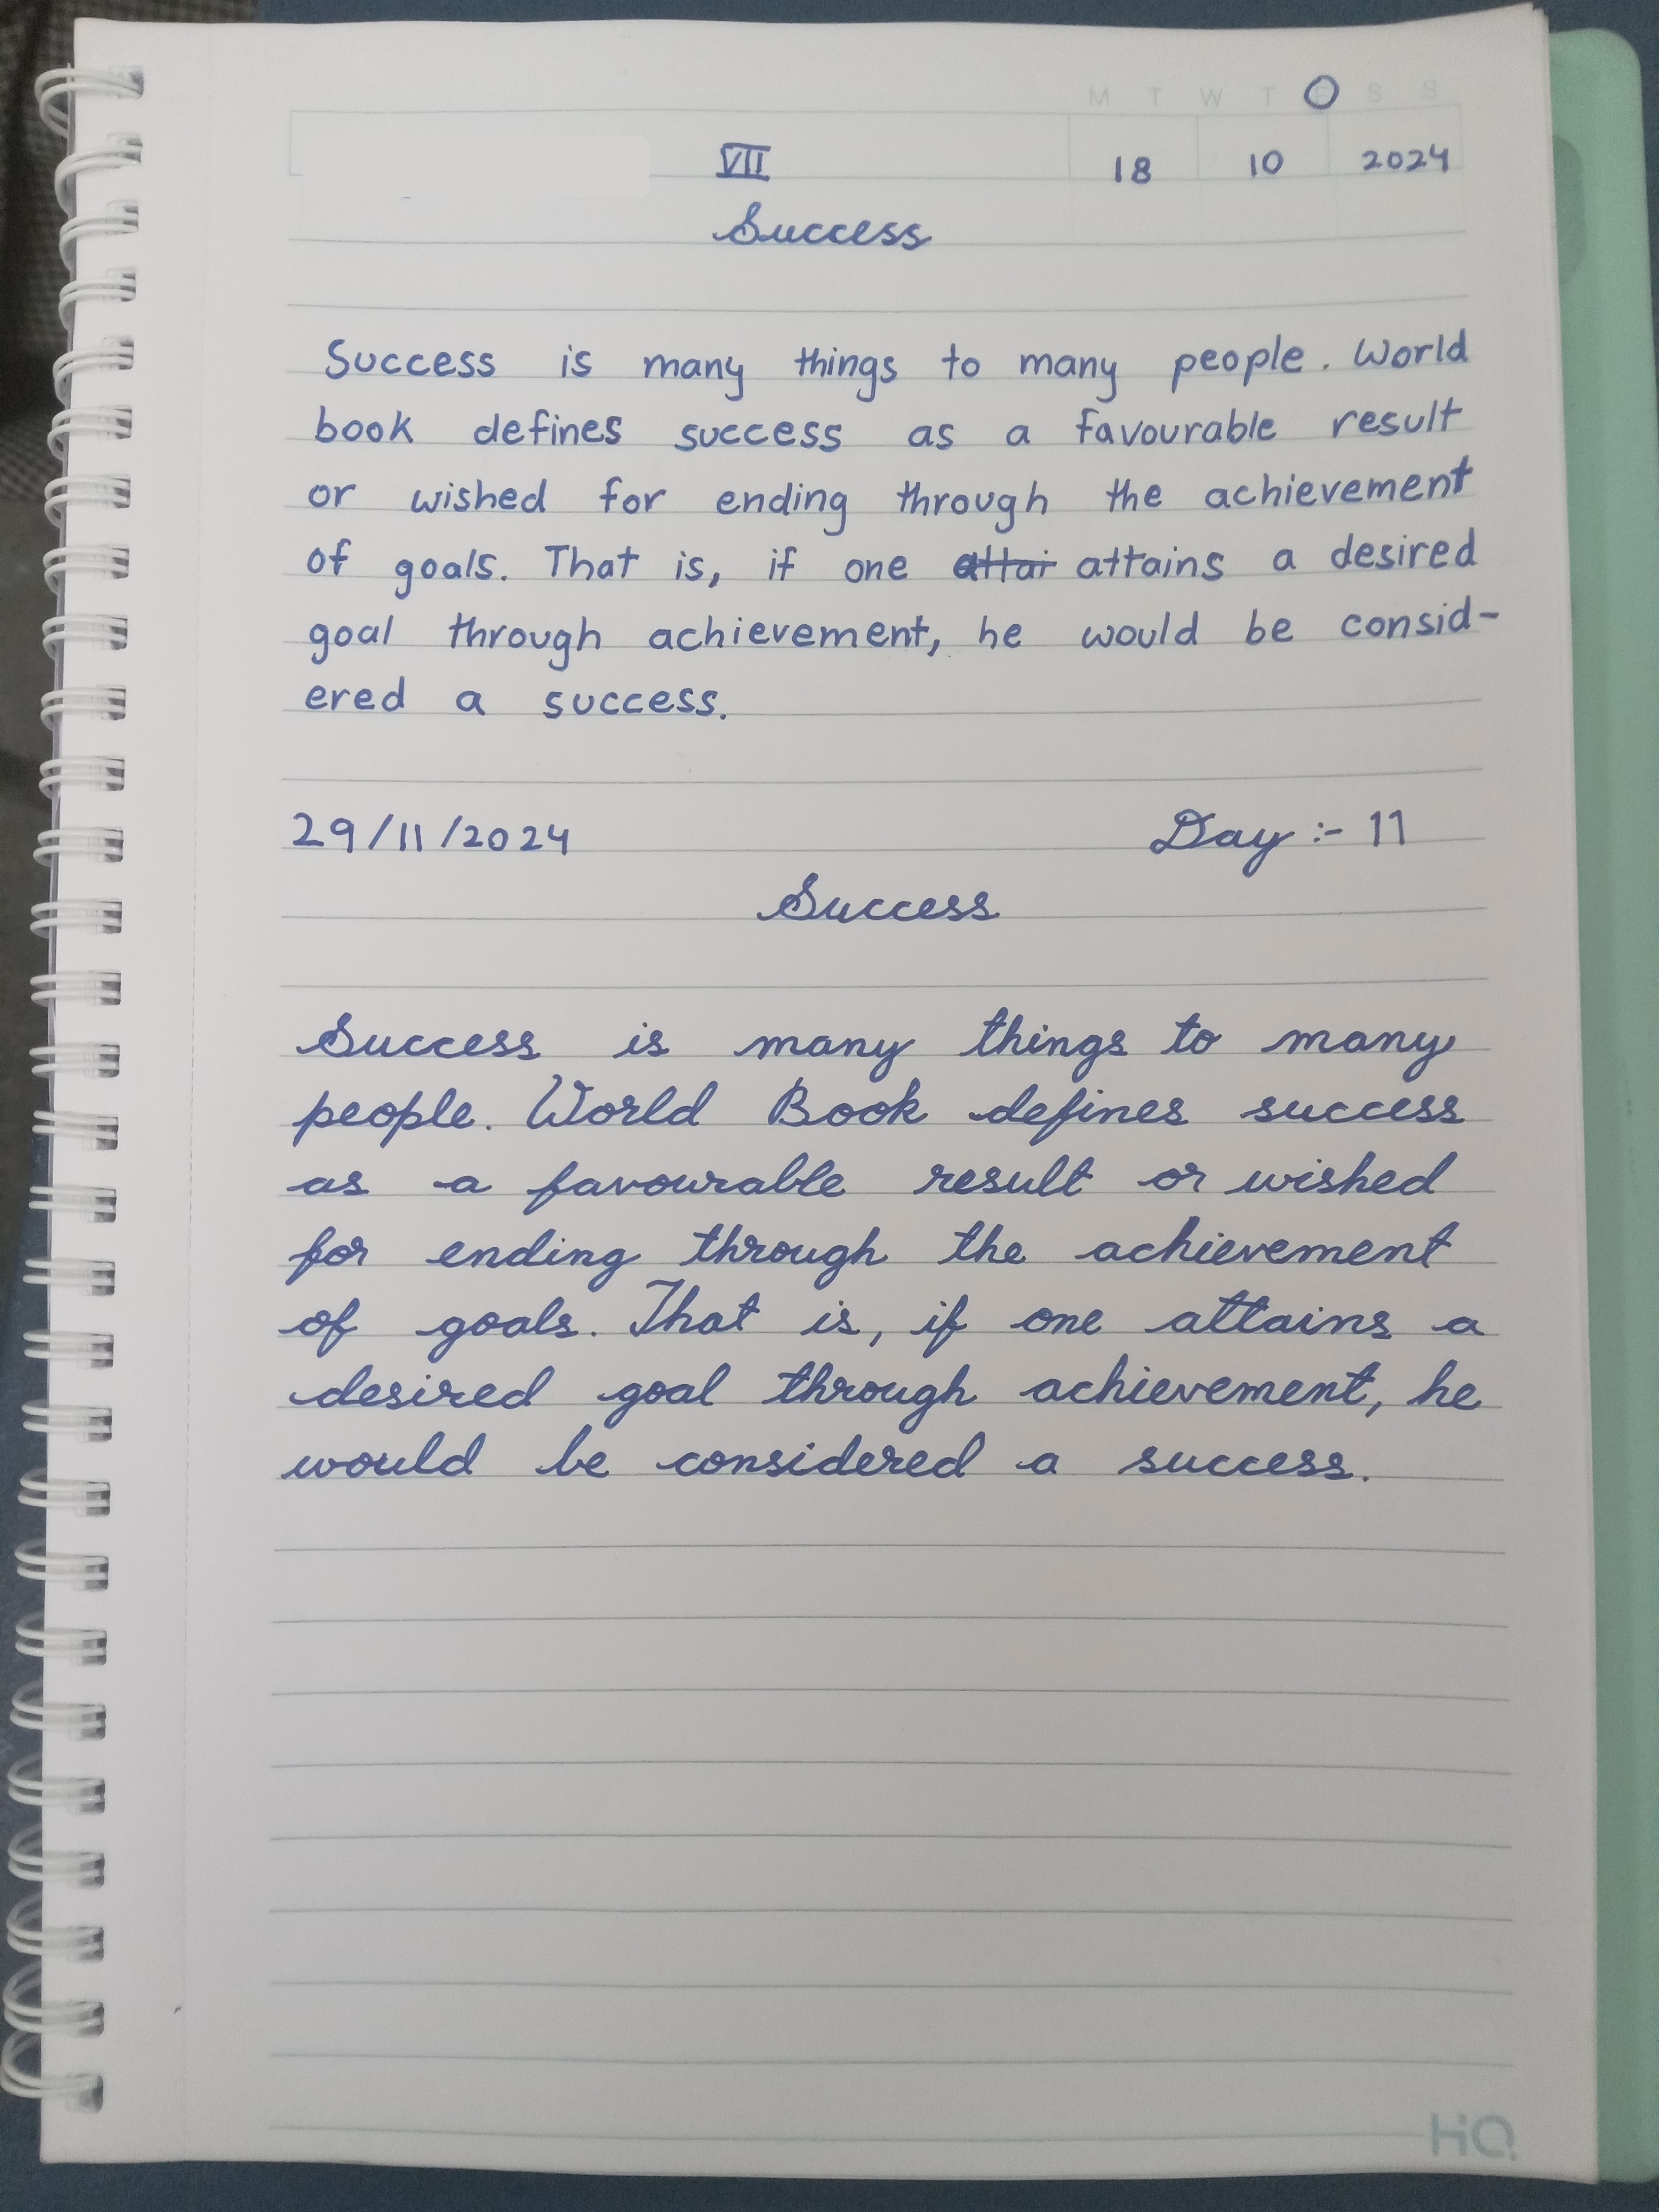 M T W T S S
VII 18 10 2024
Success
Success is many things to many people. World
book defines success as a favourable result
or wished for ending through the achievement
of goals. That is, if one attai attains a desired
goal through achievement, he would be consid-
ered a success.
29/11/2024 Day :- 11
Success
Success is many things to many
people. World Book defines success
as a favourable result or wished
for ending through the achievement
of goals. That is, if one attains a
desired goal through achievement, he
would be considered a success.
HQ